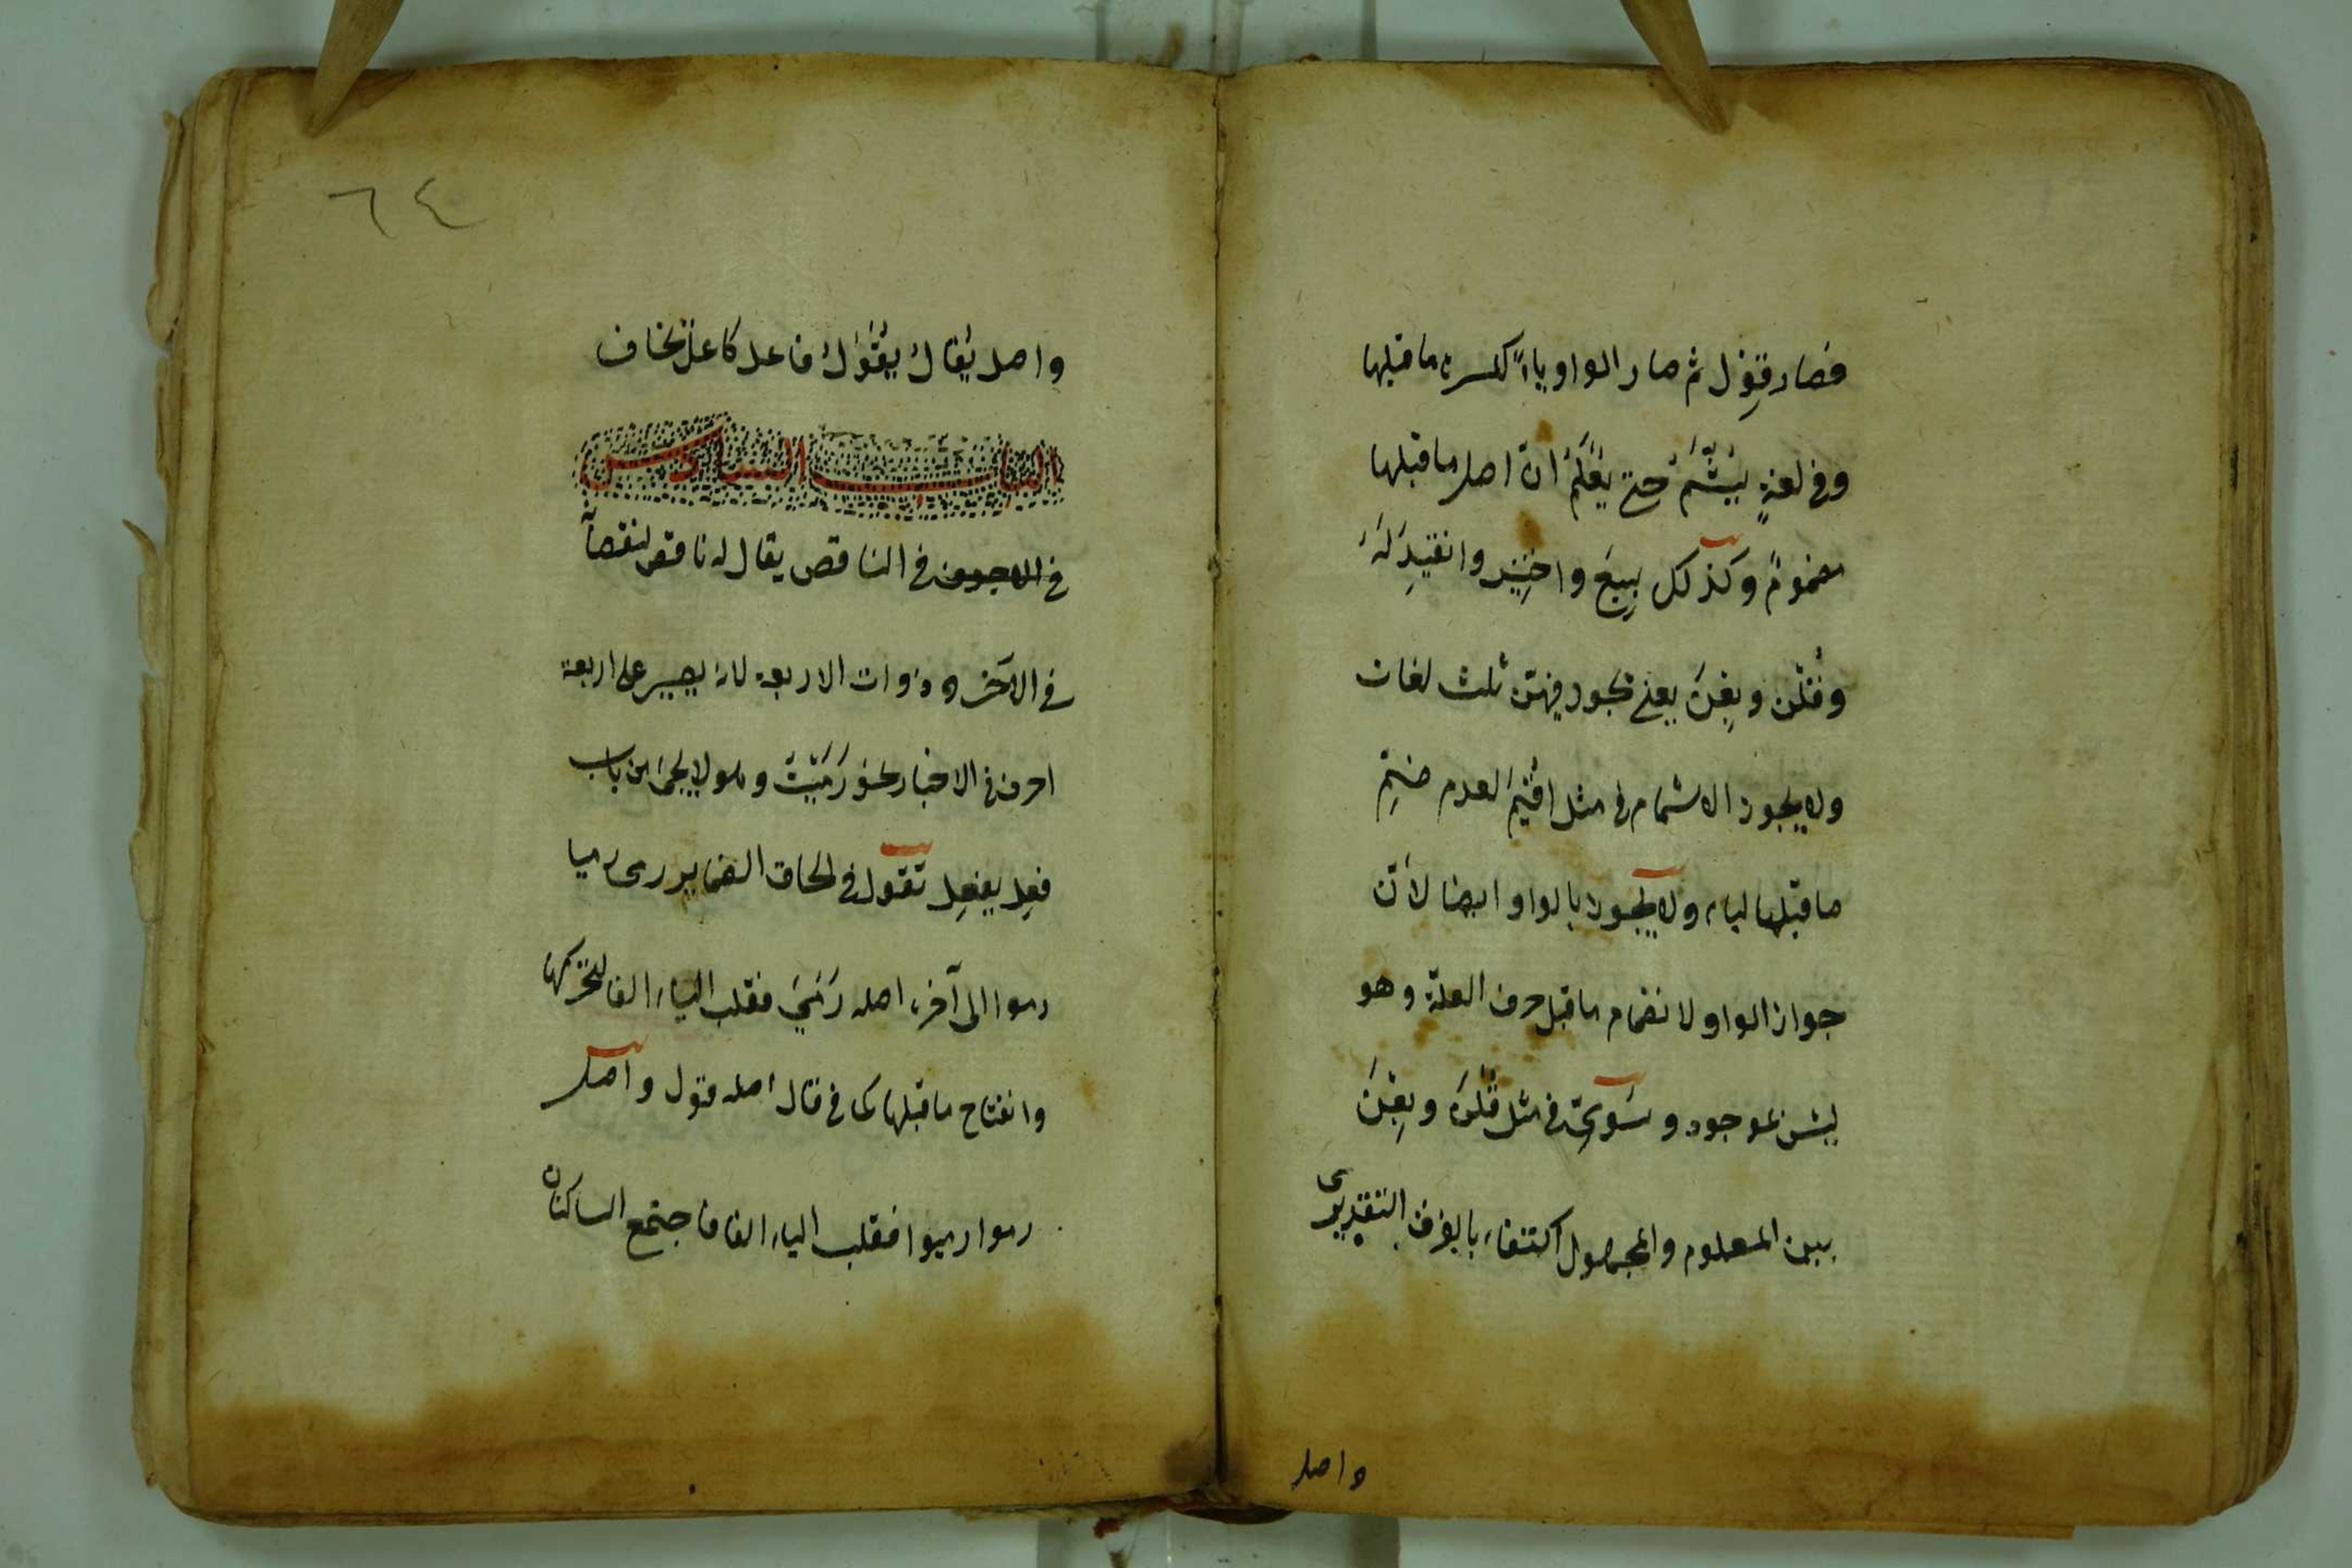 فصار قِوِل ثم صار الواو ياءً لكسرة ما قبلها
وفى لغةٍ يُشَمُّ حتى يُعْلَمَ انّ اصل ما قبلها
مضمومٌ وكذلك بِيعَ واختِير وانقِيدَ لَهُ
وقُلْنَ وبِعْنَ يعنى يجوز فيهنّ ثلث لغات
ولا يجوز الاشمام فى مثل اُقِيمَ لعدم ضمّ
ما قبل الياء ولا يجوز بالواو ايضا لأنّ
جواز الواو لانضمام ما قبل حرف العلة وهو
ليس بموجود وسُوِّىَ فى مثل قُلْنَ وبِعْنَ
بين المعلوم والمجهول اكتفاء بالفرق التقديرى
واصل
٦٤
واصل يُقالُ يُقْوَلُ فاعل كاعلال يخاف
الباب السادس
فى الاجوف فى الناقص يقال له ناقص لنقصان
فى الآخر وذوات الاربعة لانه يصير على اربعة
احرف فى الاخبار نحو رَمَيْتُ وهو لا يجئ من باب
فعِل يفعِل تقول فى الحاق الضماير رمى رميا
رموا الى آخره اصله رَمَىَ فقلب الياء الفا لتحركها
وانفتاح ما قبلها كما فى قال اصله قول واصل
رموا رميوا فقلب الياء الفا فاجتمع الساكنان